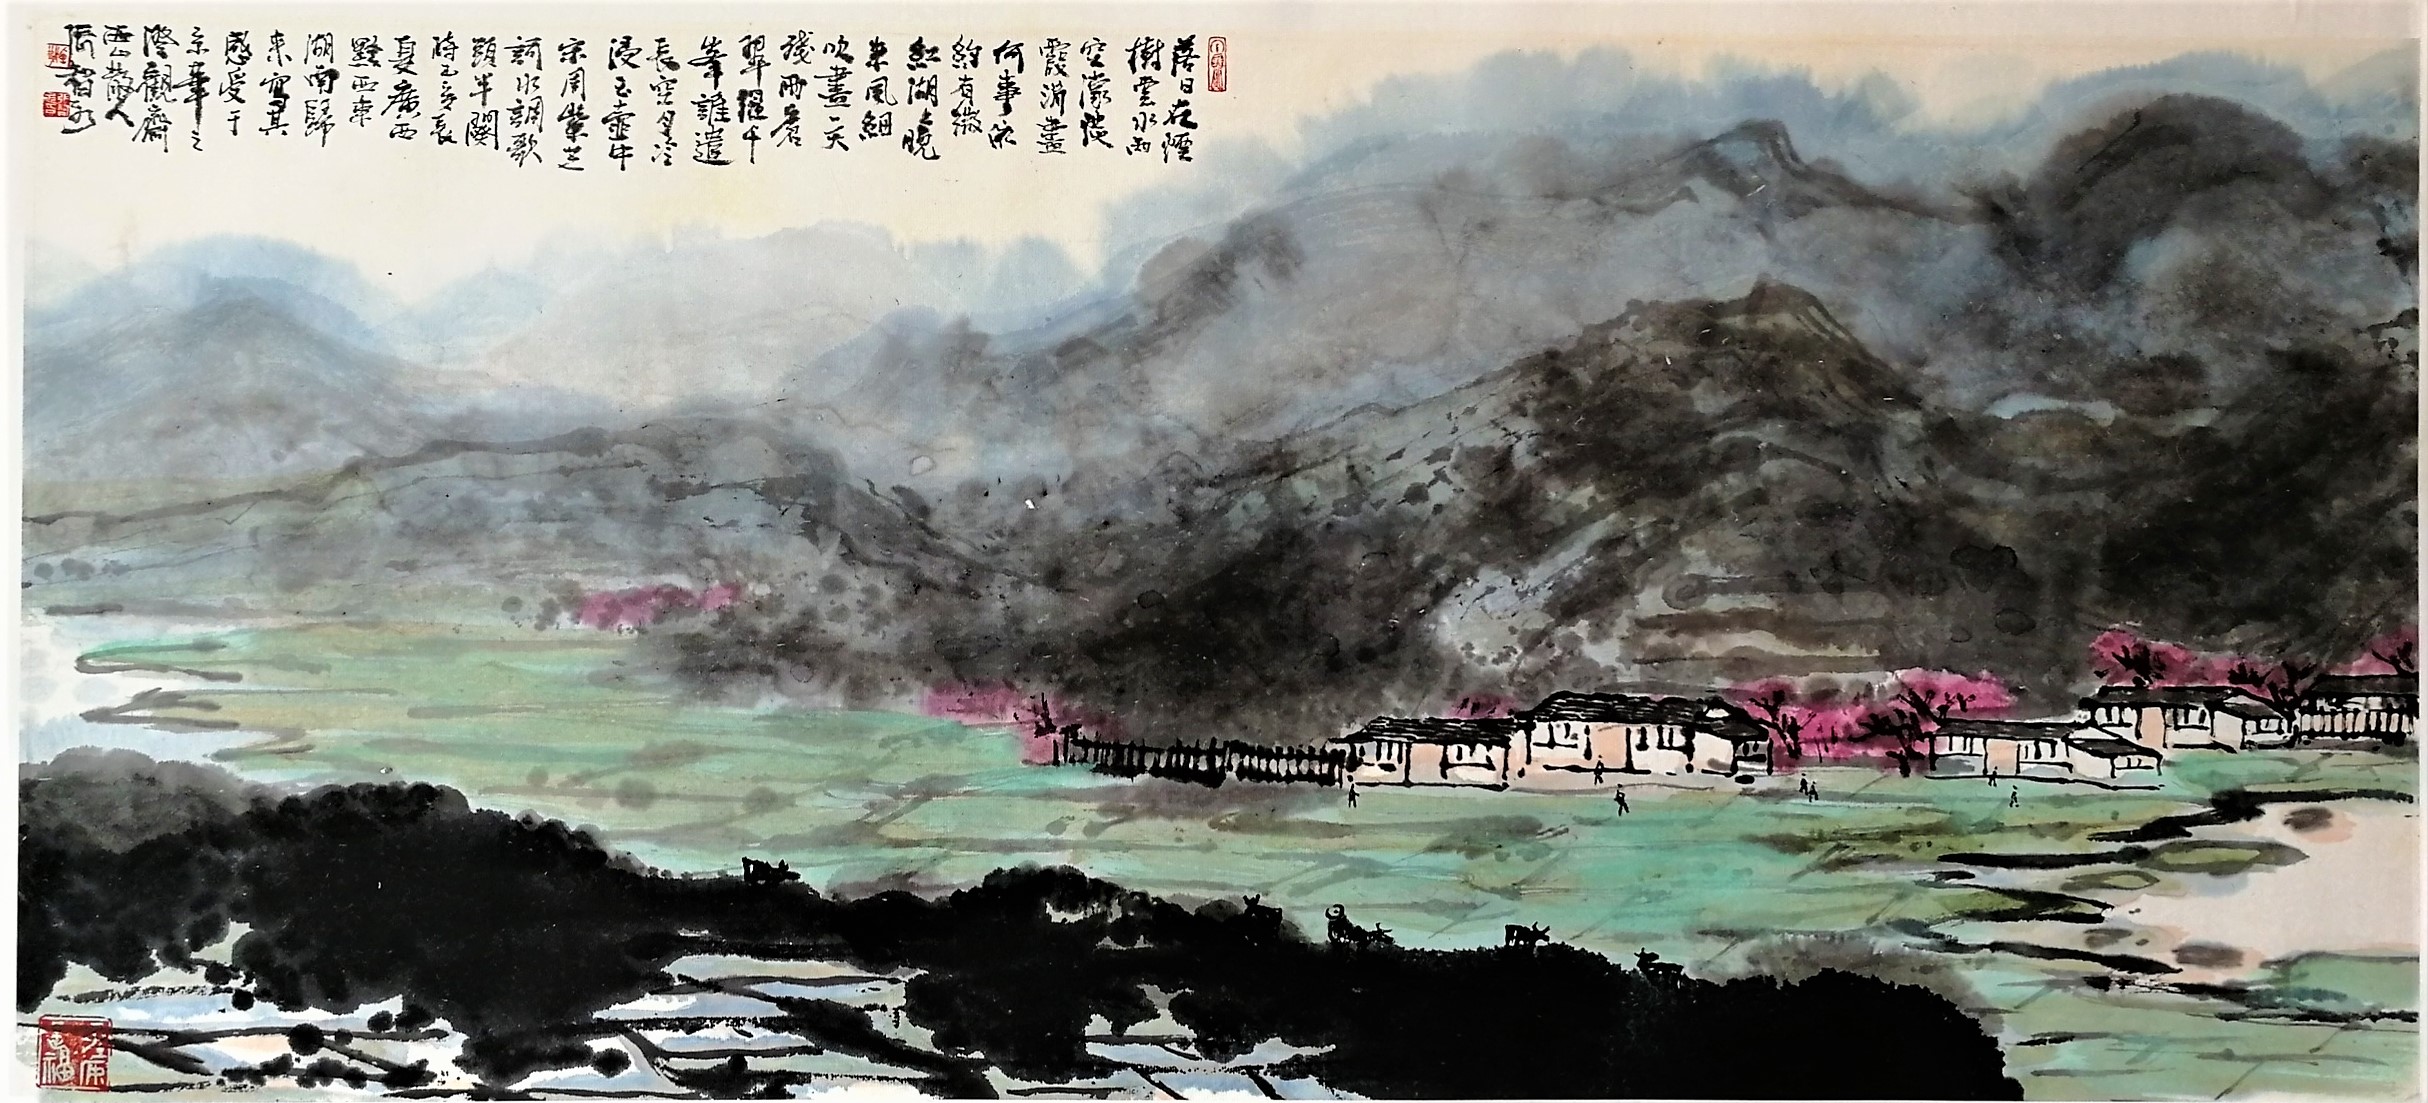 落日在煙
樹雲水兩
空濛淡
霞消盡
何事依
約有微
紅湖上晚
來風細
吹盡一天
殘雨蒼
翠濕千
峯誰遣
長空月冷
浸玉壺中
宋周紫芝
詞水調歌
頭半闋
時乙亥長
夏廣西
黔西東
湖南歸
來寫其
感受于
京華之
澄觀齋
海山散人
張智